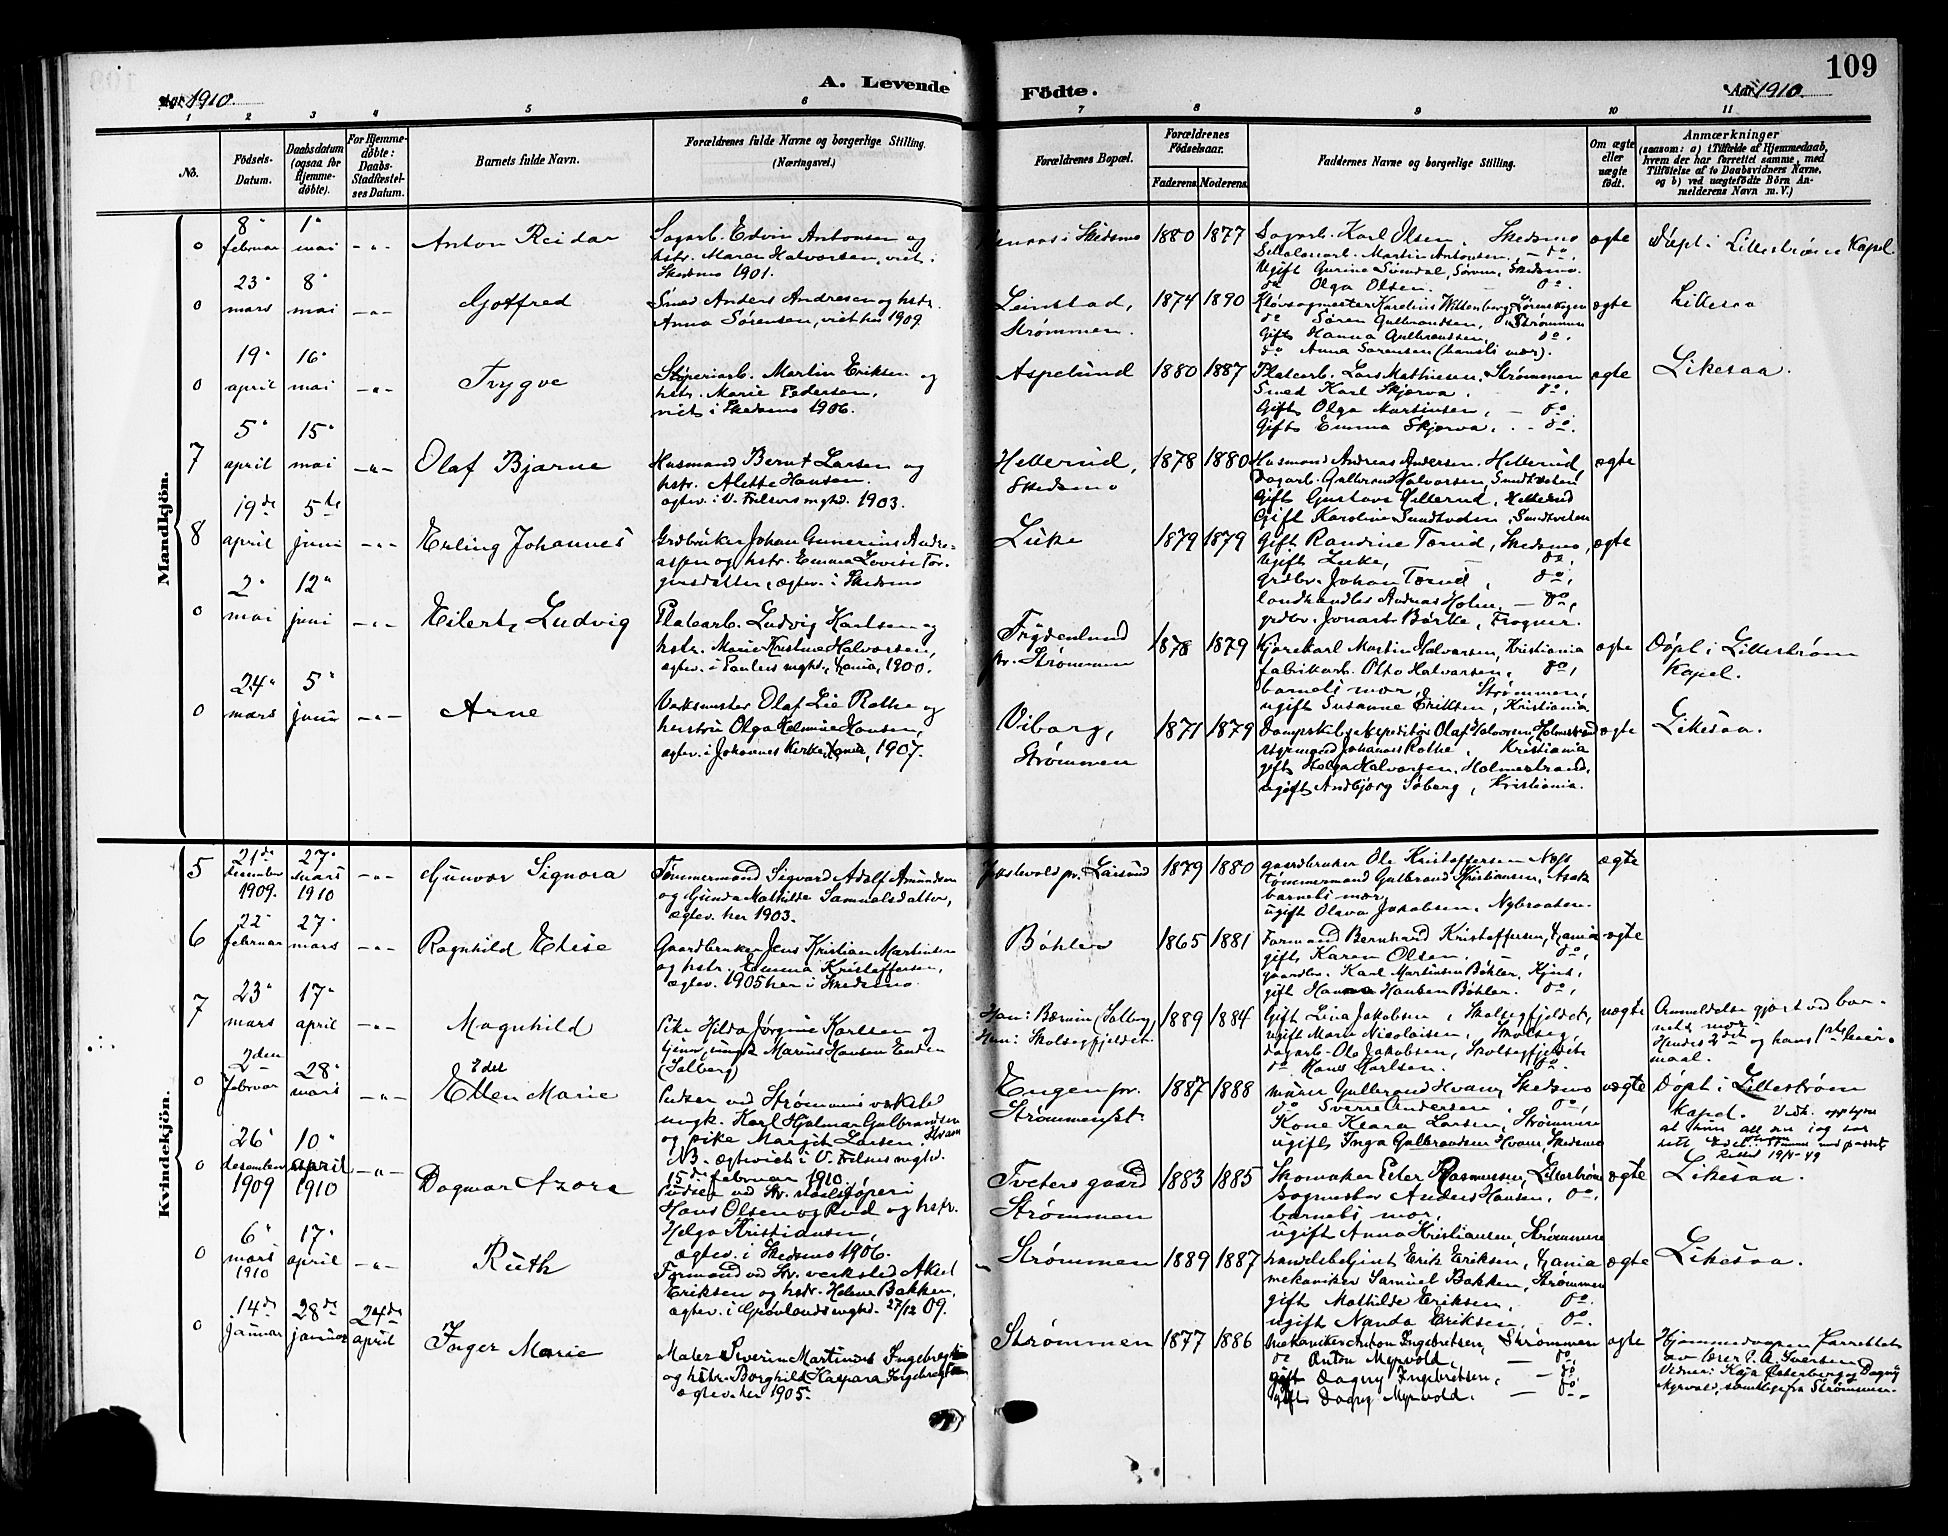 109
Aar 1910.
A. Levende Födte.
Aar 1910.
1 2 3 4 5 6 7 8 9 10 11
No.
Födsels-Datum.
Daabsdatum (ogsaa for Hjemme-døbte).
For Hjemme-døbte: Daabs-Stadfæstel-ses Datum.
Barnets fulde Navn.
Forældrenes fulde Navne og borgerlige Stilling. (Næringsvei.)
Forældrenes Bopæl.
Forældrenes Födselsaar.
Faderens. Moderens.
Faddernes Navne og borgerlige Stilling.
Om ægte eller uægte født.
Anmærkninger
(saasom: a) i Tilfælde af Hjemmedaab, hvem der har forrettet samme, med Tilføielse af to Daabsvidners Navne, og b) ved uægtefødte Börn An-melderens Navn m. V.)
Mandkjön.
0 8 februar 1 mai Anton Reidar
Sagarb. Edvin Antonsen og
hstr. Maren Halvorsen, viet i
Skedsmo 1901.
i Skedsmo 1880 1877
Sagarb. Karl Olsen, Skedsmo
Martin Antonsen, do,
Ugift Gurine Skedsmo.
do Olga Olsen. do
ægte
Døpt i Lillestrøm Kapel.
0 23 mars 8 mai Gotfred
Smed Anders Andresen og hstr.
Anna Sørensen, viet her 1909.
Leinstad,
Strømmen.
1874 1890
Karelius Wittenberg, Lørenskogen
do Søren Gulbrandsen, Strømmen
Gift Hanna Gulbrandsen, do,
do Anna Sørensen (barnets mor).
ægte
Likesaa
0 19 april 16 mai Trygve
Støperiarb. Martin Eriksen og
hstr. Marie Pedersen,
viet i Skedsmo 1906.
Aspelund 1880 1887
Platearb. Lars Mathiesen, Strømmen
Smed Karl Skjerva, do.
Gift Olga Martinsen, — do.
Gift Emma Skjerva. - do.
ægte
Likesaa.
7 5 april 15 mai Olaf Bjarne
Husmand Bernt Larsen og
hstr. Alette Hansen.
ægtev. i V. Frelsers mght. 1903.
Hellerud,
Skedsmo
1878 1880
Husmand Andreas Andersen. Hellerud,
Dagarb. Gulbrand Halvorsen,
Gift Gustava Hellerud, Hellerud
Gift Karoline
ægte
8 19de april 5te juni Erling Johannes
Grdbruker Johan Gunerius Andre-
assen og hstr. Emma Lovise Tor-
gersdatter, ægtev. i Skedsmo
Luke 1879 1879
Gift Randine Skedsmo,
Ugift Luke, do,
Grdbr. Johan do,
landhandler Andreas Holm, — do,
grdbr. Jonas Børke, Frogner.
ægte
0 2 mai 12 juni Eilert Ludvig
Platearb. Ludvig Karlsen og
hstr. Marie Kristine Halvorsen,
ægtev. i Paulus mght., Kania, 1900.
Frydenlund
pr. Strømmen
1878 1879
Kjørekarl Martin Halvorsen, Kristiania
fabrikarb. Otto Halvorsen, do,
barnets mor, Strømmen,
ugift Susanne Eriksen, Kristiania
ægte
Døpt i Lillestrøm
Kapel.
0 24 mars 5 juni Arne
Verksmester Olaf Lie Rothe og
hustru Olga Helmine Hansen,
ægtev. i Johannes Kirke, Kania, 1907.
Viborg,
Strømmen
1871 1879
Dampskibsekspeditør Olaf Halvorsen, Holmestrand
styrmand Johannes Rothe, Kristiania
gift Helga Halvorsen, Holmestrand,
ugift Andbjørg Søberg, Kristiania.
ægte
Likesaa.
Kvindekjön.
5 21de desember 1909. 27 mars 1910 Gunvor Signora
Tømmermand Sigvard Adolf Amundsen
og Gunda Mathilde Samuelsdatter,
ægtev. her 1903.
1879 1880
gaardbruker Ole Kristoffersen Næs
tømmermand Gulbrand Kristiansen, Asak
barnets mor,
ugift Olava Jakobsen, Nybraaten.
ægte
6 22 februar 27 mars Ragnhild Elise
Gaardbruker Jens Kristian Martinsen
og hstr. Emma Kristoffersen,
ægtev. 1905 her i Skedsmo
Bøhler 1865 1881
Formand Bernhard Kristoffersen, Kania
gift Karen Olsen, — do,
gaardbr. Karl Martinsen Bøhler, Kjus,
gift Hanna Hansen Bøhler. do,
ægte
7 23 mars 17 april Magnhild
Pike Hilda Jørgine Karlsen og
ungk. Marius Hansen Enden
(Solberg)
Han: Bærum (Solberg)
Hun: Skolsegfjeldet.
1889 1884
Gift Lina Jakobsen, Skolsegfjeldet,
ugift Marie Nicolaisen, Skolseg,
dagarb. Ole Jakobsen, Skolsegfjeldet
do. Hans Karlsen. do.
uægte
Anmeldelse gjort ved bar-
nets mor
Hendes 2det og hans 1ste leier-
maal.
0 2den februar 28 mars Edel
Ellen Marie
Pudser ved Strømmens verksted
ungk. Karl Hjalmar Gulbrandsen Hvam
og pike Margit Larsen.
NB. ægteviet i V. Frelsers mght.
15de februar 1910.
Engen pr.
Strømmen st.
1887 1888
murer Gulbrand Hvam, Skedsmo
do Sverre Andersen, do,
Kone Klara Larsen, Strømmen
ugift Inga Gulbrandsen Hvam, Skedsmo
uægte
Døpt i Lillestrøm
Kapel.
0 26 desember 1909 10 april 1910 Dagmar Azora
Pudser ved Str. staalstøperi
Hans Olsen og hstr.
Helga Kristiansen,
ægtev. i Skedsmo 1906.
Tveters gaard
Strømmen
1883 1885
Skomaker Peter Rasmussen, Lillestrøm
Sagmester Anders Hansen, do,
barnets mor,
ugift Anna Kristiansen, Strømmen
ægte
Likesaa.
0 6 mars 1910 17 april Ruth
Formand ved Str. verksted Aksel
Eriksen og hstr. Helene Bakken,
ægtev. i Grønlands mght. 27/12 09.
Strømmen 1889 1887
handelsbetjent Erik Eriksen, Kania
mekaniker Samuel Bakken, Strømmen
gift Mathilde Eriksen, do.
ugift Nanda Eriksen, do.
ægte
Likesaa.
0 14de januar 28de januar 24de april Inger Marie
Maler Severin Martinius Ingebregtsen
og hstr. Borghild Kaspara Ingebregtsen
ægtev. her 1905.
Strømmen 1877 1886
Mekaniker Anton Ingebretsen, Strømmen
do Anton Myrvold, — do,
gift Dagny Ingebretsen, — do
gift Dagny Myrvold. — do
ægte
Hjemmedaapen forrettet
av lærer P. A. Iversen
Vidner: Kaja Østerberg og Dagny
Myrvold, samtlige fra Strømmen.